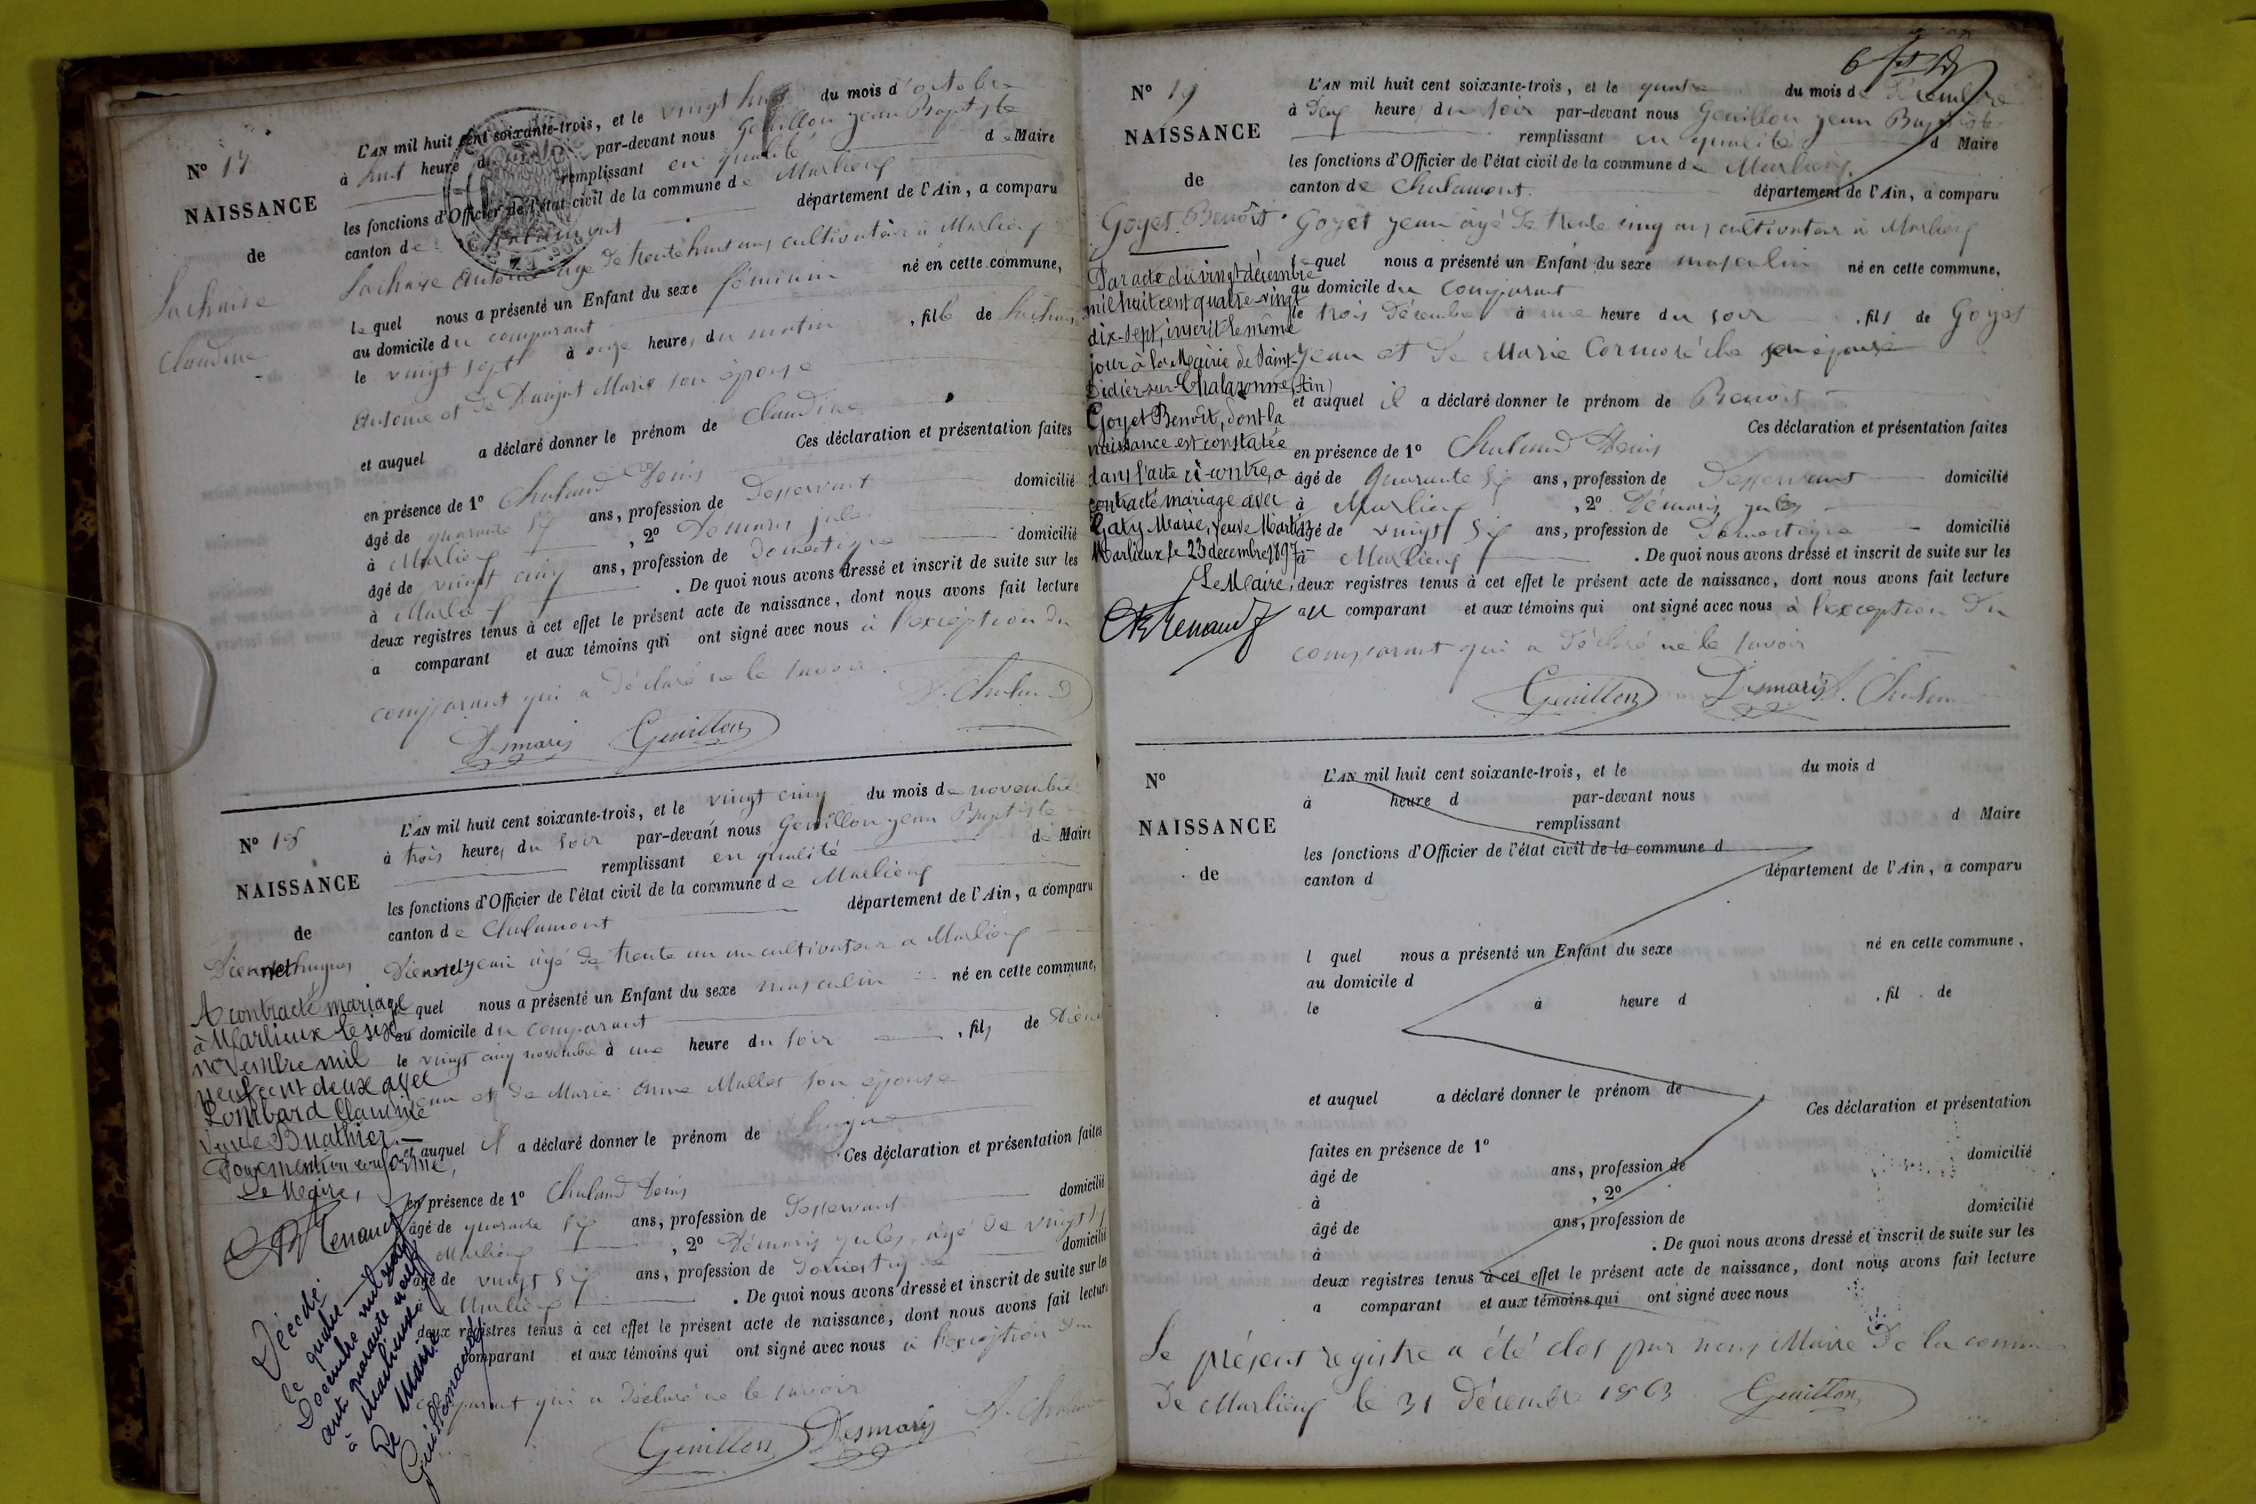 N° 17
NAISSANCE
de
Lachaise
Claudine
L'AN mil huit cent soixante-trois, et le vingt huit du mois d'octobre
à huit heure du par-devant nous Genillon jean Baptiste
remplissant en qualité de Maire
les fonctions d'Officier de l'état civil de la commune de Marlieux
canton de Chalamont département de l'Ain, a comparu
Lachaise Antoine age de trente huit ans cultivateur à Marlieux
lequel nous a présenté un Enfant du sexe féminin né en cette commune,
au domicile du comparant
le vingt sept à onze heures du matin, fille de Lachaise
Antoine et de Marie son épouse
et auquel a déclaré donner le prénom de Claudine
Ces déclaration et présentation faites
en présence de 1° Chaland Denis
âgé de quarante six ans, profession de Desservant domicilié
à Marlieux, 2° Démaris jules
âgé de vingt cinq ans, profession de domestique domicilié
à Marlieux. De quoi nous avons dressé et inscrit de suite sur les
deux registres tenus à cet effet le présent acte de naissance, dont nous avons fait lecture
a comparant et aux témoins qui ont signé avec nous à l'exception du
comparant qui a Déclaré ne le savoir.
D. Chaland
Desmaris Genillon
N° 18
NAISSANCE
de
Diennet hugues
L'AN mil huit cent soixante-trois, et le vingt cinq du mois de novembre
à trois heures du soir par-devant nous Genillon jean Baptiste
remplissant en qualité de Maire
les fonctions d'Officier de l'état civil de la commune de Marlieux
canton de Chalamont département de l'Ain, a comparu
Diennet jean âgé de trente un an cultivateur a Marlieux
lequel nous a présenté un Enfant du sexe masculin né en cette commune,
au domicile du comparant
le vingt cinq novembre à une heure du soir, fils de
jean et de Marie Anne Mallet son épouse
et auquel il a déclaré donner le prénom de hugues
Ces déclaration et présentation faites
en présence de 1° Chaland Denis
âgé de quarante six ans, profession de Desservant domicilié
Marlieux, 2° Démaris jules, âgé de vingt six
âgé de vingt six ans, profession de Domestique domicilié
à Marlieux. De quoi nous avons dressé et inscrit de suite sur les
deux registres tenus à cet effet le présent acte de naissance, dont nous avons fait lecture
comparant et aux témoins qui ont signé avec nous à l'exception du
comparant qui a Déclaré ne le savoir
Genillon Desmaris D. Chaland
A contracté mariage
à Marlieux le six
novembre mil
neuf cent deux avec
Lombard Claudine
veuve Buathier.
Pour mention conforme,
Le Maire,
Renaud
Décédé
le quatre
Décembre mil neuf
cent quarante neuf
à Marlieux
Le Maire
N° 19
NAISSANCE
de
Goyet Benoît.
L'AN mil huit cent soixante-trois, et le quatre du mois de Décembre
à Deux heures du soir par-devant nous Genillon jean Baptiste
remplissant en qualité d Maire
les fonctions d'Officier de l'état civil de la commune de Marlieux
canton de Chalamont. département de l'Ain, a comparu
Goyet jean âgé de trente cinq ans cultivateur à Marlieux
lequel nous a présenté un Enfant du sexe masculin né en cette commune,
au domicile du comparant
le trois Décembre à une heure du soir, fils de Goyet
jean et de Marie Cormorèche son épouse
et auquel il a déclaré donner le prénom de Benoit
Ces déclaration et présentation faites
en présence de 1° Chaland Denis
âgé de quarante six ans, profession de Desservant domicilié
à Marlieux, 2° Démaris jules
âgé de vingt six ans, profession de Domestique domicilié
à Marlieux. De quoi nous avons dressé et inscrit de suite sur les
deux registres tenus à cet effet le présent acte de naissance, dont nous avons fait lecture
au comparant et aux témoins qui ont signé avec nous à l'exception du
comparant qui a Déclaré ne le savoir
Genillon Desmaris D. Chaland
Par acte du vingt décembre
mil huit cent quatre-vingt
dix-sept, inscrit le même
jour à la Mairie de Saint-
Didier-sur-Chalaronne (Ain)
Goyet Benoît, dont la
naissance est constatée
dans l'acte ci-contre, a
contracté mariage avec
Gaty Marie, veuve
Marlieux, le 23 décembre 1897
Le Maire,
Renaud
N°
NAISSANCE
de
L'AN mil huit cent soixante-trois, et le du mois d
à heure d par-devant nous
remplissant d Maire
les fonctions d'Officier de l'état civil de la commune d
canton d département de l'Ain, a comparu
l quel nous a présenté un Enfant du sexe né en cette commune,
au domicile d
le à heure d, fil de
et auquel a déclaré donner le prénom de
Ces déclaration et présentation
faites en présence de 1°
âgé de ans, profession de domicilié
à , 2°
âgé de ans, profession de domicilié
à . De quoi nous avons dressé et inscrit de suite sur les
deux registres tenus à cet effet le présent acte de naissance, dont nous avons fait lecture
a comparant et aux témoins qui ont signé avec nous
Le présent registre a été clos par nous Maire De la commune
De Marlieux le 31 Décembre 1863 Genillon